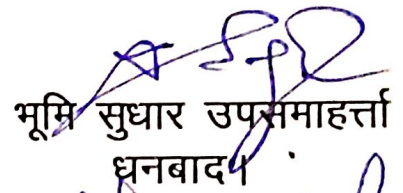 भूमि सुधार उपसमाहर्त्ता
धनबाद।